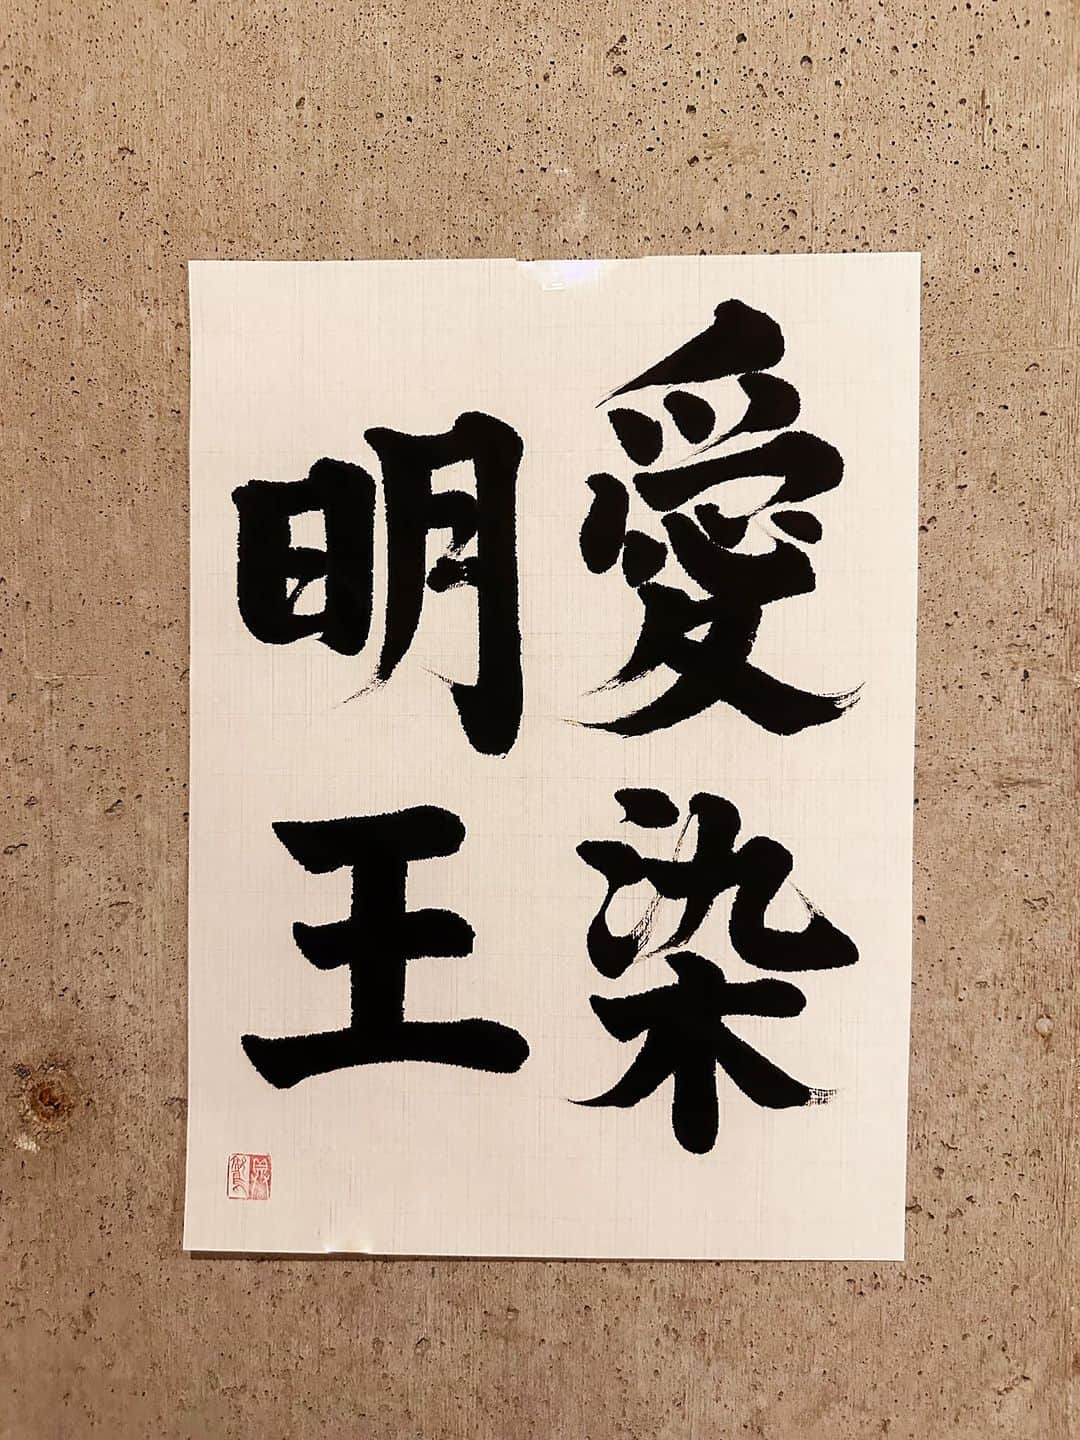 愛染
明王